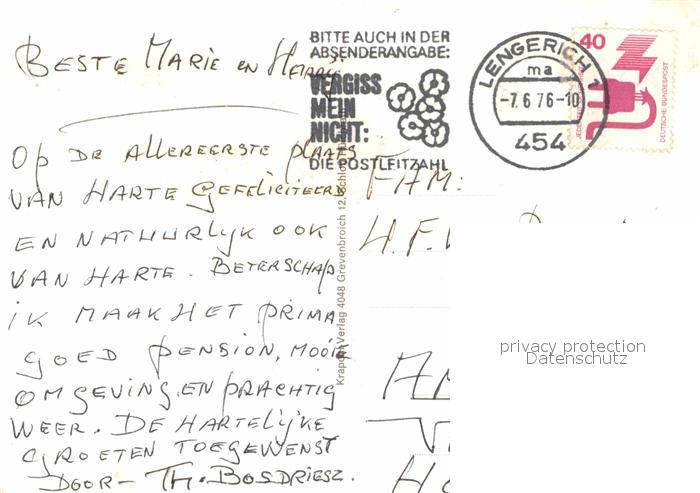 BESTE MARIE en HARRY
OP DE ALLEREERSTE PLAATS
VAN HARTE GEFELICITEERD
EN NATUURLIJK OOK
VAN HARTE. BETERSCHAP
IK MAAK HET PRIMA
GOED PENSION, MOOIE
OMGEVING EN PRACHTIG
WEER. DE HARTELIJKE
GROETEN TOEGEWENST
DOOR - TH. BOSDRIESZ.
BITTE AUCH IN DER
ABSENDERANGABE:
VERGISS
MEIN
NICHT:
DIE POSTLEITZAHL
LENGERICH 1
ma
-7.6.76-10
454
40
DEUTSCHE BUNDESPOST
Verlag 4048 Grevenbroich 12,
FAM:
H.F.
privacy protection
Datenschutz